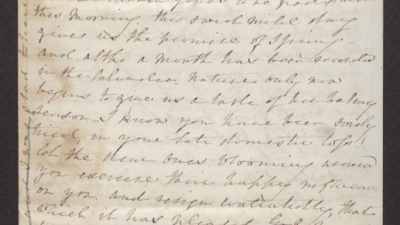 this morning. this mild day
gives us the promise of Spring
and altho a month has been recorded
in the calendar, Nature only now
begins to give us a taste of her balmy
season I know you have been sorely
tried in your late domestic loss!
let the dear ones blooming around
you exercise their happy influence
on you and resign contentedly, that
which it has pleased God